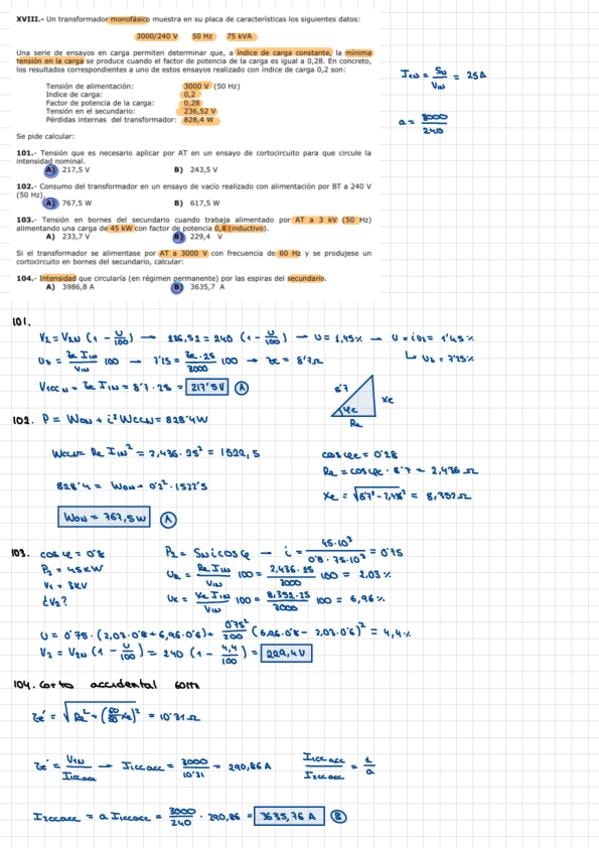 XVIII.- Un transformador monofásico muestra en su placa de características los siguientes datos:
3000/240 V 50 Hz 75 kVA
Una serie de ensayos en carga permiten determinar que, a índice de carga constante, la mínima
tensión en la carga se produce cuando el factor de potencia de la carga es igual a 0,28. En concreto,
los resultados correspondientes a uno de estos ensayos realizado con índice de carga 0,2 son:
Tensión de alimentación: 3000 V (50 Hz)
Indice de carga: 0,2
Factor de potencia de la carga: 0,28
Tensión en el secundario: 236,52 V
Pérdidas internas del transformador: 828,4 W
Se pide calcular:
101.- Tensión que es necesario aplicar por AT en un ensayo de cortocircuito para que circule la
intensidad nominal.
A) 217,5 V B) 243,5 V
102.- Consumo del transformador en un ensayo de vacío realizado con alimentación por BT a 240 V
(50 Hz).
A) 767,5 W B) 617,5 W
103.- Tensión en bornes del secundario cuando trabaja alimentado por AT a 3 kV (50 Hz)
alimentando una carga de 45 kW con factor de potencia 0,8 (inductivo).
A) 233,7 V B) 229,4 V
Si el transformador se alimentase por AT a 3000 V con frecuencia de 60 Hz y se produjese un
cortocircuito en bornes del secundario, calcular:
104.- Intensidad que circularía (en régimen permanente) por las espiras del secundario.
A) 3986,8 A B) 3635,7 A
I1N = SN/V1N = 25A
a = 3000/240
101.
V2 = V2N (1 - U/100) → 236,52 = 240 (1 - U/100) → U = 1,45% → U = iUs = 1'45%
Us = Ze I1N/V1N 100 → 7'15 = Ze·25/3000 100 → Ze = 8'7Ω
V1ccN = Ze I1N = 8'7·25 = 217'5V A
8'7
φe
Xe
Re
102. P = WoN + i² WccN = 828'4W
WccN = Re I1N² = 2,436·25² = 1522,5
cosφe = 0'28
Re = cosφe · 8'7 = 2,436 Ω
828'4 = WoN + 0'2² · 1522'5
Xe = √8'7² - 2,43² = 8,352Ω
WoN = 767,5W A
103. cosφ = 0'8
P2 = SN i cosφ → i = 45·10³/0'8·75·10³ = 0'75
P2 = 45KW
V1 = 3KV
¿V2?
UR = Re I1N/V1N 100 = 2,436·25/3000 100 = 2.03%
UX = Xe I1N/V1N 100 = 8,352·25/3000 100 = 6,96%
U = 0'75·(2,03·0'8 + 6,96·0'6) + 0'75²/200 (6,96·0'8 - 2,03·0'6)² = 4,4%
V2 = V2N (1 - U/100) = 240 (1 - 4,4/100) = 229,4V
104. Corto accidental 60Hz
Ze' = √Re² + (60/50 Xe)² = 10'31Ω
Ze' = V1N/I1ccacc → I1ccacc = 3000/10'31 = 290,86A
I1ccacc/I2ccacc = 1/a
I2ccacc = a I1ccacc = 3000/240 · 290,86 = 3635,76 A B